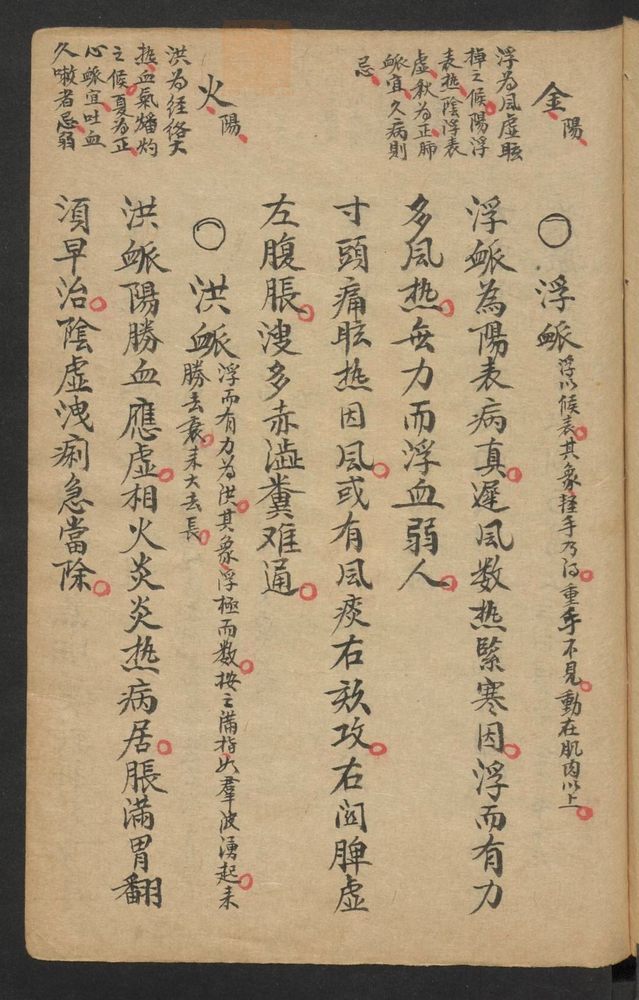 金 陽
浮為風虛眩
掉之候陽浮
表热陰浮表
虛秋為正肺
衇宜久病則
忌
○ 浮衇 浮以候表其象轻手乃得重手不見動在肌肉以上
浮衇為陽表病真遲風数热緊寒因浮而有力
多風热無力而浮血弱人
寸頭痛眩热因風或有風痰右欬攻右関脾虛
左腹脹溲多赤澁糞难通
火 陽
洪為经络大
热血氣燔灼
之候夏為正
心衇宜吐血
久嗽者忌弱
○ 洪衇 浮而有力為洪其象浮極而数按之满指如羣波湧起来
勝去衰来大去長
洪衇陽勝血應虛相火炎炎热病居脹滿胃翻
須早治陰虛洩痢急當除